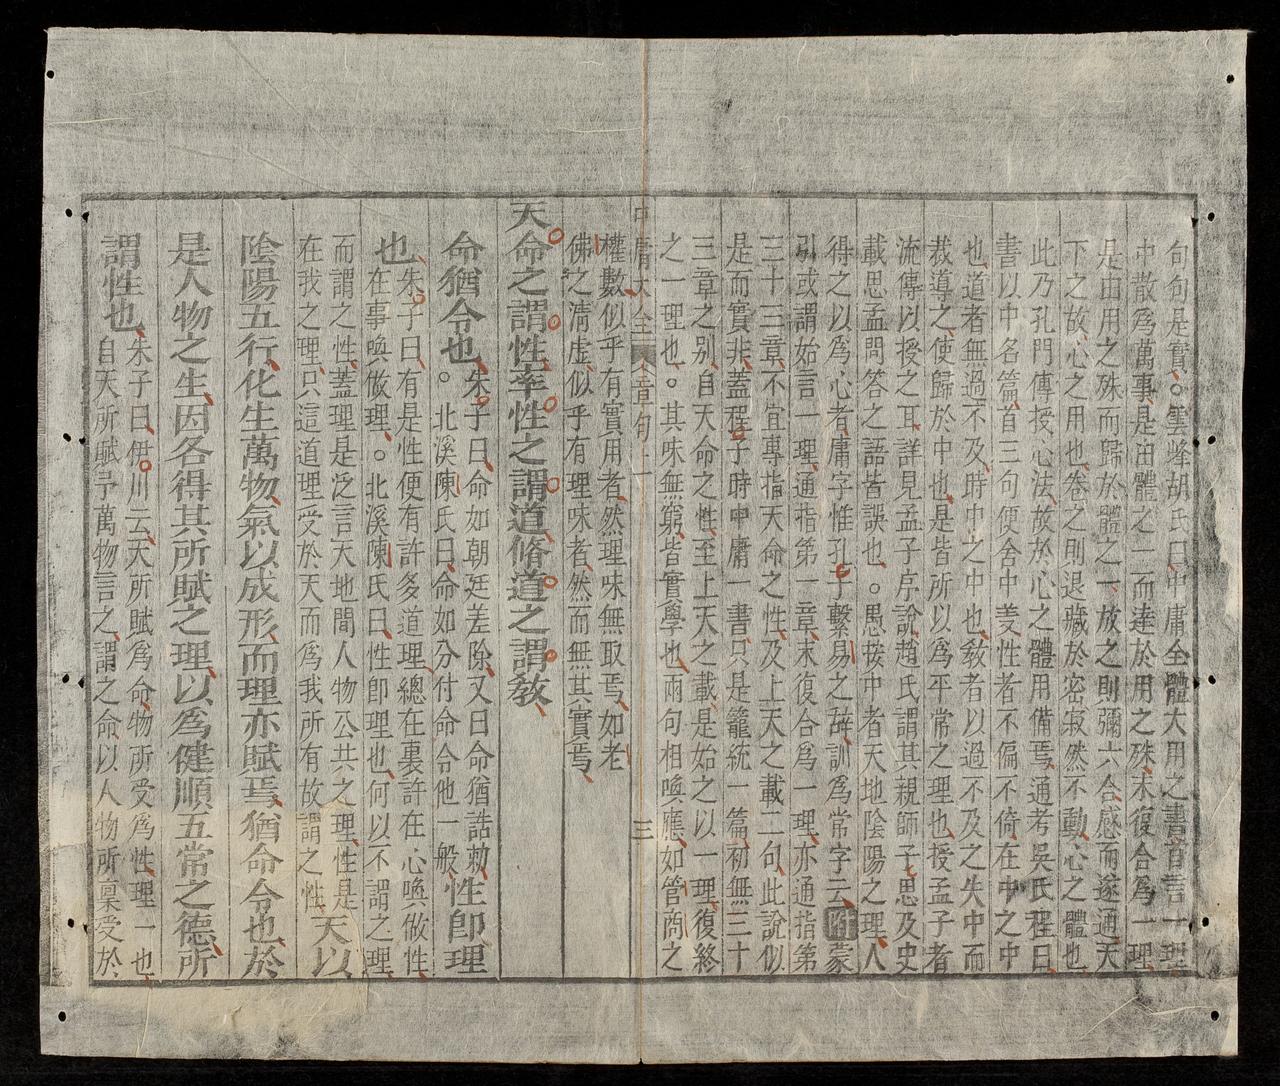 句句是實○雲峰胡氏曰中庸全體大用之書首言一理
中散爲萬事是由體之一而達於用之殊末復合爲一理
是由用之殊而歸於體之一放之則彌六合感而遂通天
下之故心之用也卷之則退藏於密寂然不動心之體也
此乃孔門傳授心法故於心之體用備焉通考吳氏程曰
書以中名篇首三句便舍中姜性者不偏不倚在中之中
也道者無過不及時中之中也敎者以過不及之失中而
裁導之使歸於中也是皆所以爲平常之理也授孟子者
流傳以授之耳詳見孟子序說趙氏謂其親師子思及史
載思孟問答之語皆誤也○愚按中者天地陰陽之理人
得之以爲心者庸字惟孔子繫易之辭訓爲常字云附蒙
引或謂始言一理通指第一章末復合爲一理亦通指第
三十三章不宜專指天命之性及上天之載二句此說似
是而實非蓋程子時中庸一書只是籠統一篇初無三十
三章之別自天命之性至上天之載是始之以一理復終
之一理也○其味無窮皆實學也兩句相喚應如管商之
中庸大全 章句 三
權數似乎有實用者然理味無取焉如老
佛之清虛似乎有理味者然而無其實焉
天命之謂性率性之謂道脩道之謂敎
命猶令也朱子曰命如朝廷差除又曰命猶誥勑
○北溪陳氏曰命如分付命令他一般性卽理
也朱子曰有是性便有許多道理總在裏許在心喚做性
在事喚做理○北溪陳氏曰性卽理也何以不謂之理
而謂之性蓋理是泛言天地間人物公共之理性是
在我之理只這道理受於天而爲我所有故謂之性天以
陰陽五行化生萬物氣以成形而理亦賦焉猶命令也於
是人物之生因各得其所賦之理以爲健順五常之德所
謂性也朱子曰伊川云天所賦爲命物所受爲性理一也
自天所賦予萬物言之謂之命以人物所稟受於